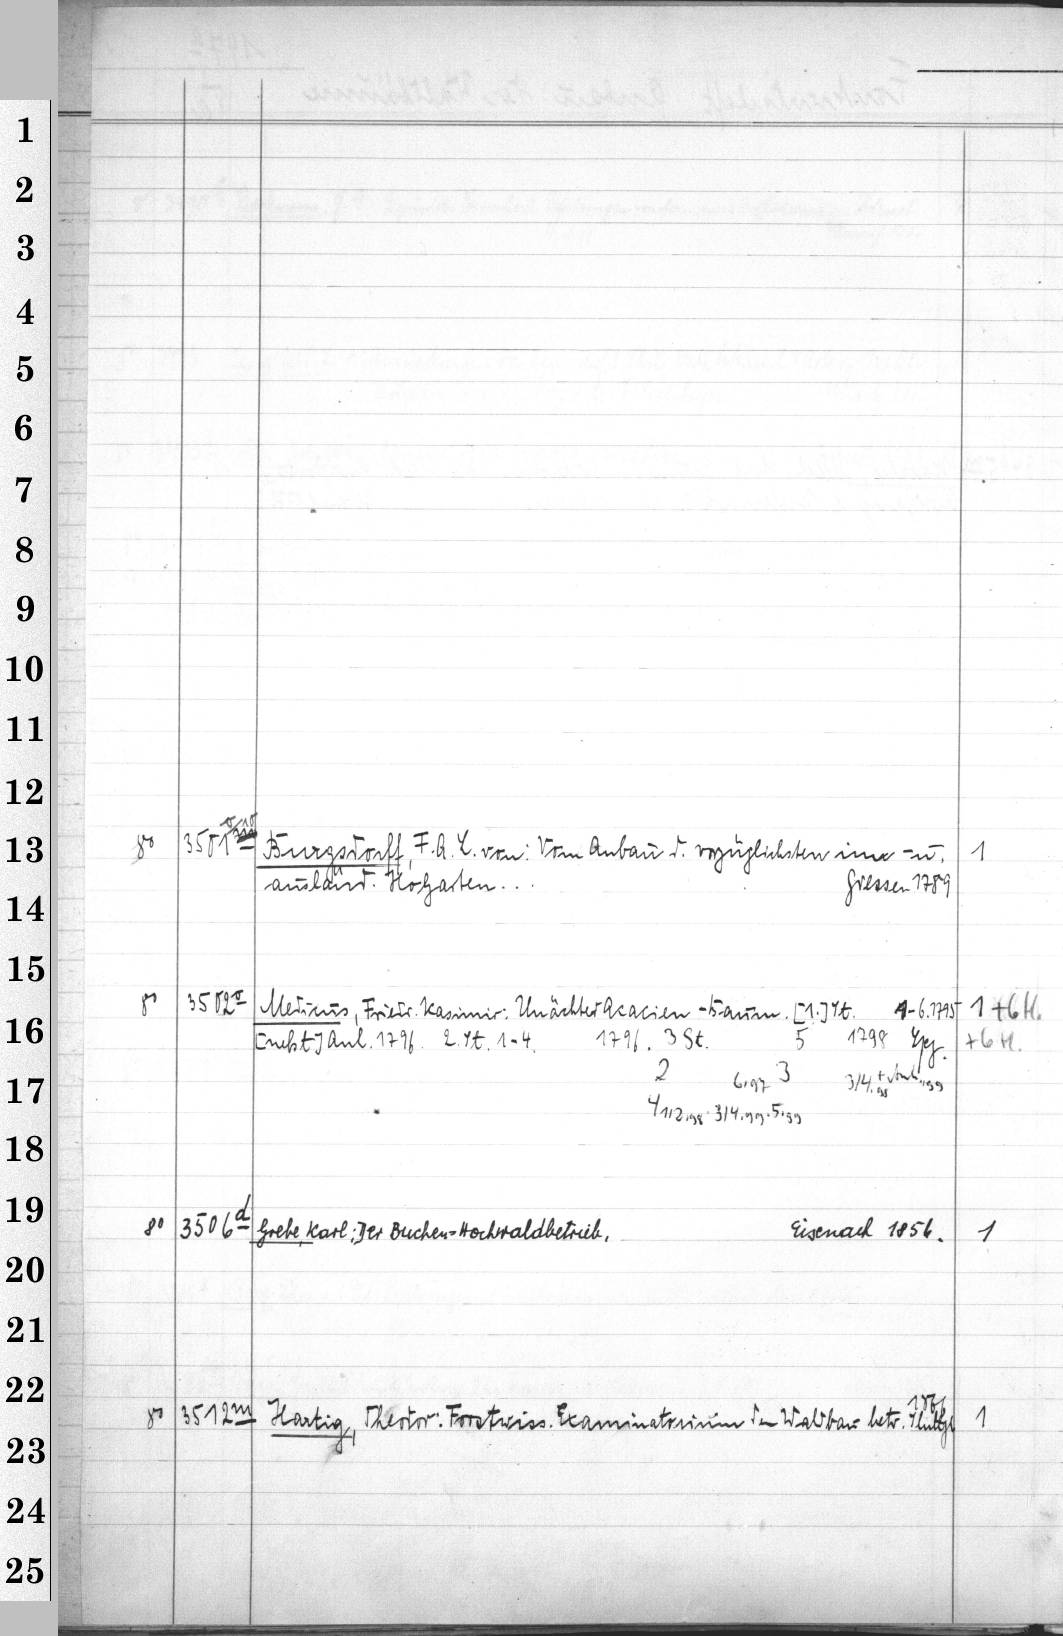 1
2
3
4
5
6
7
8
9
10
11
12
8° 3501 Burgsdorff, F.A.L. von: Vom Anbau d. vorzüglichsten inn- u. 1
13
ausländ. Holzarten... Giessen 1789
14
15
8° 3502 Medicus, Friedr. Kasimir: Unächter Acacien-Baum. [1.] St. 1-6.1795 1 +6 H.
16
[nebst] Anl. 1796. 2. St. 1-4. 1796. 3 St. 5 1798 +6 H.
2 6.97 3 3/4.98
17
4 1/2.98. 3/4.99. 5.99
18
19
8° 3506d Grebe, Karl: Der Buchen-Hochwaldbetrieb, Eisenach 1856. 1
20
21
22
1866
8° 3512m Hartig, Theodor: Forstwiss. Examinatorium den Waldbau betr. Stuttg 1
23
24
25